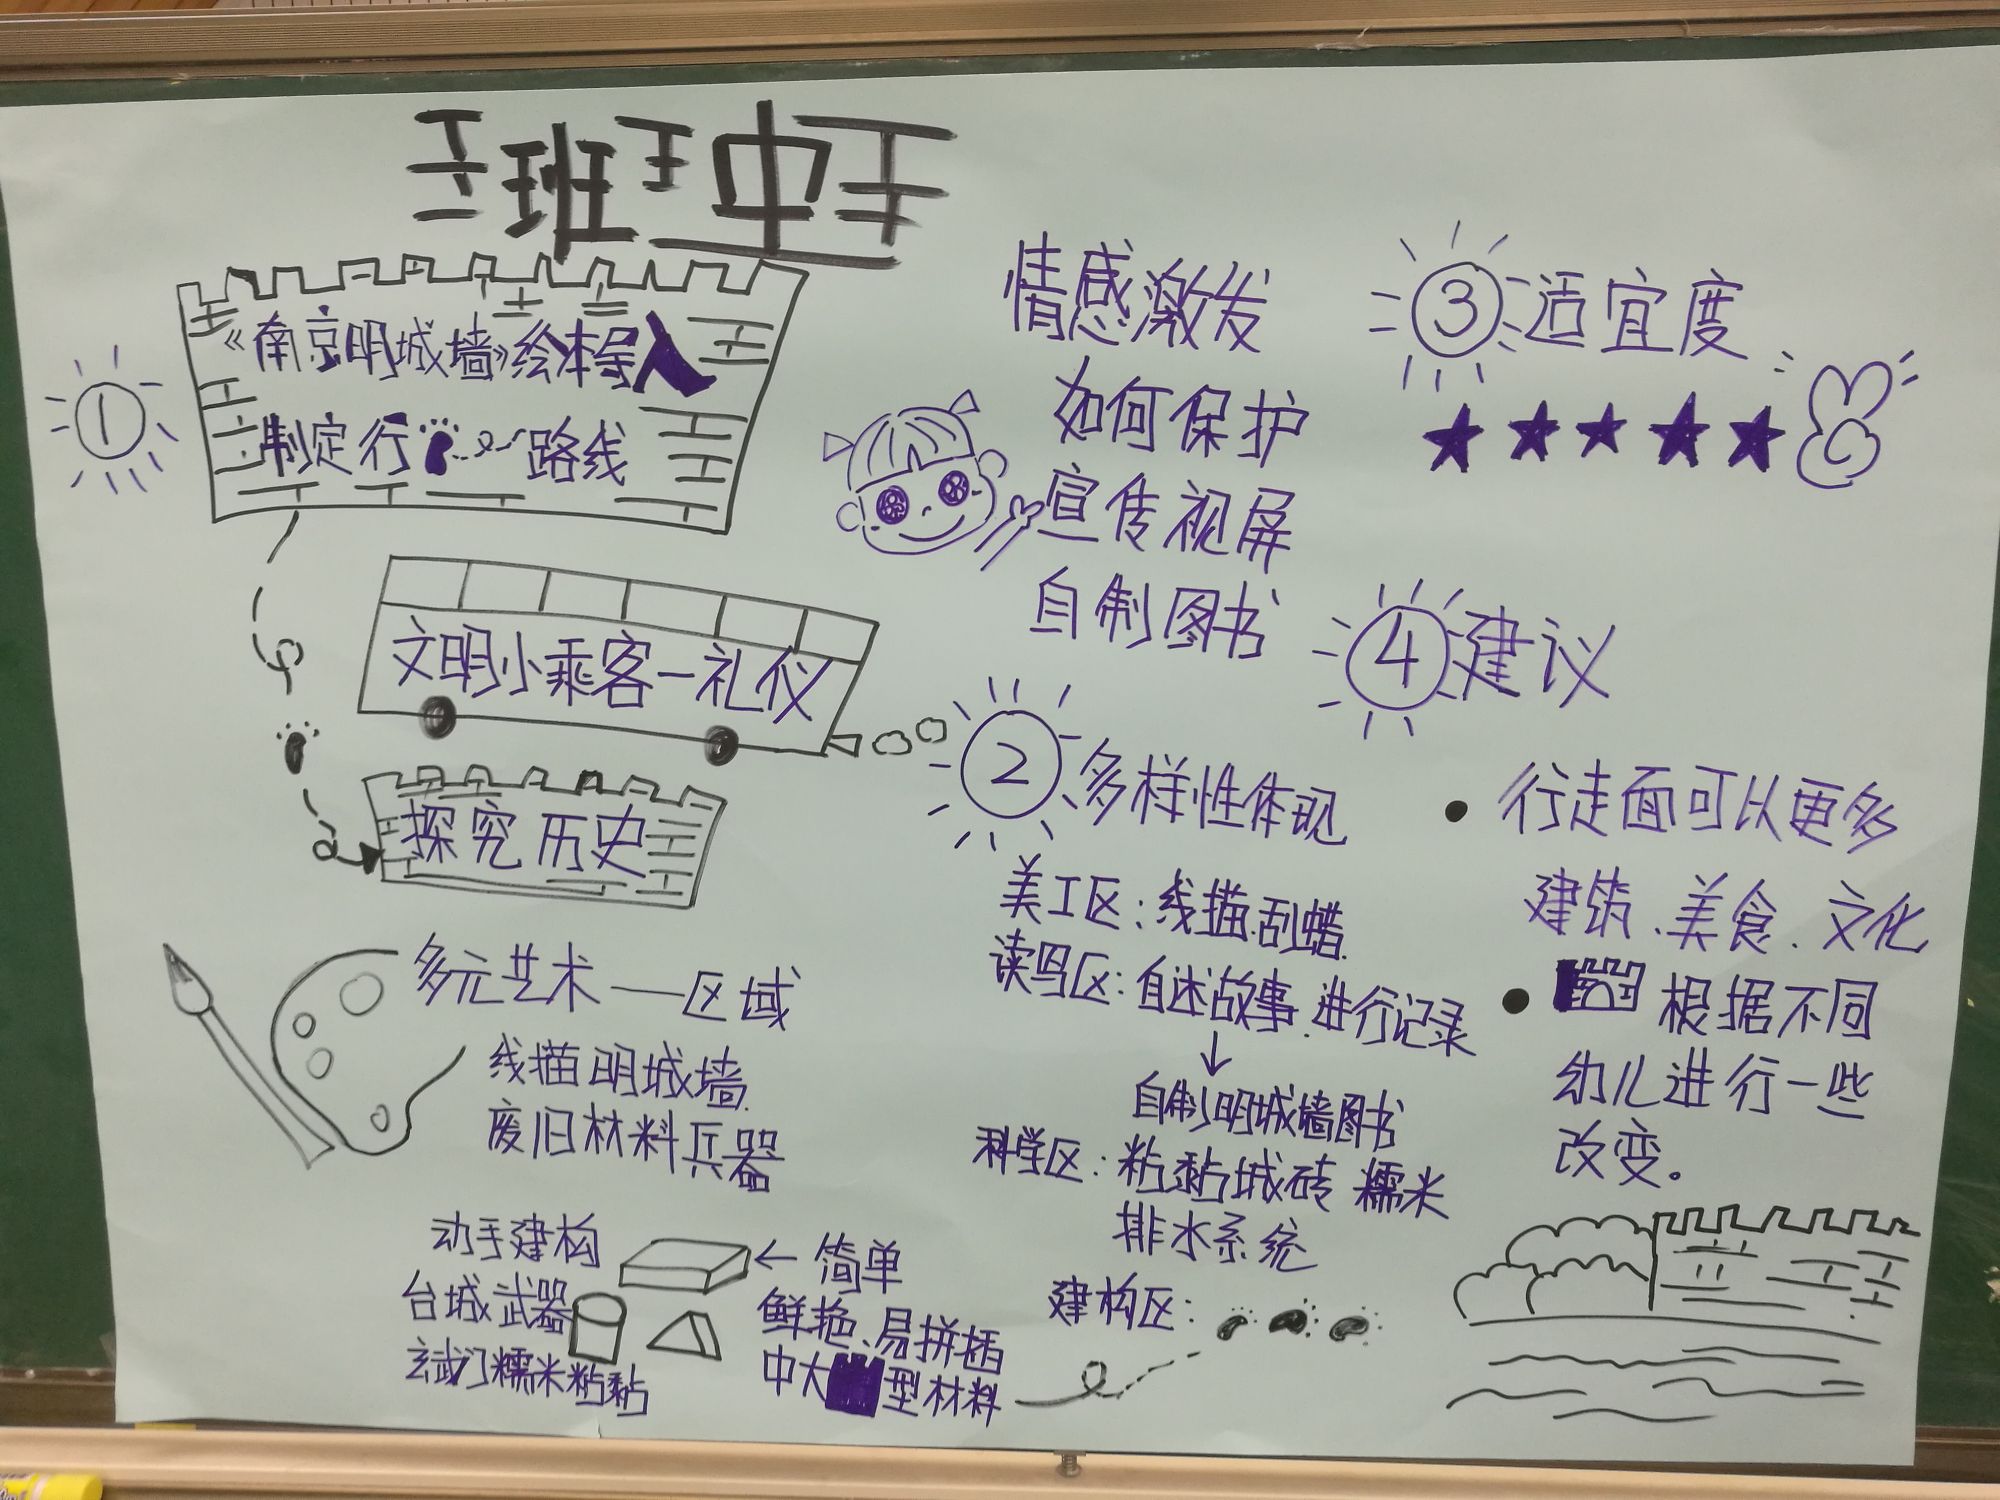 班中
①
《南京明城墙》绘本导入
制定行 路线
文明小乘客一礼仪
探究历史
多元艺术——区域
线描明城墙
废旧材料兵器
动手建构
台城武器
玄武门糯米粘黏
←简单
鲜艳、易拼插
中大型材料
情感激发
如何保护
宣传视屏
自制图书
②多样性体现
美工区:线描.刮蜡.
读写区:自述故事.进行记录
↓
自制明城墙图书
科学区:粘黏城砖 糯米
排水系统
建构区:
③适宜度
★★★★★
④建议
• 行走面可以更多
建筑、美食、文化
• 根据不同
幼儿进行一些
改变。